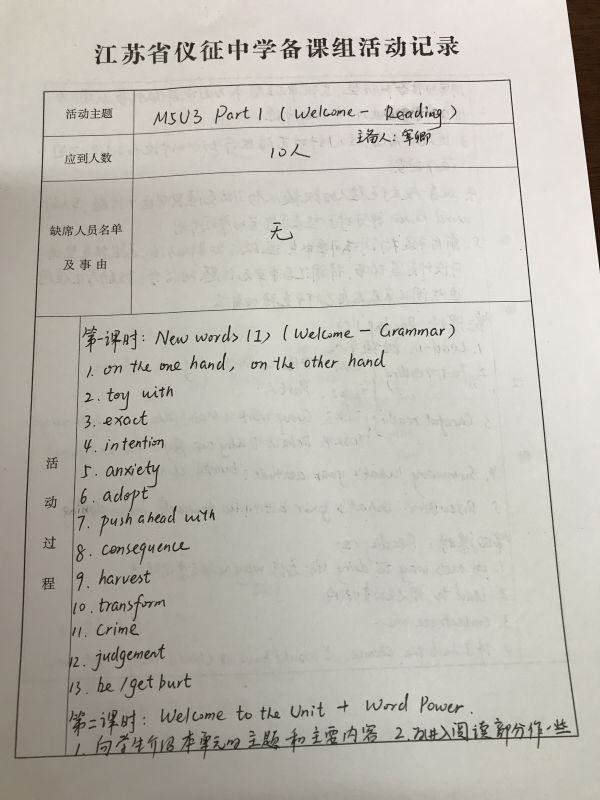 江苏省仪征中学备课组活动记录
活动主题 M5U3 Part 1 (Welcome - Reading)
主备人:
应到人数 10人
缺席人员名单
及事由
无
活动过程
第一课时: New words (1) (Welcome - Grammar)
1. on the one hand, on the other hand
2. toy with
3. exact
4. intention
5. anxiety
6. adopt
7. push ahead with
8. consequence
9. harvest
10. transform
11. crime
12. judgement
13. be/get burt
第二课时: Welcome to the Unit + Word Power.
1. 向学生介绍本单元的主题和主要内容 2. 为进入阅读部分作一些